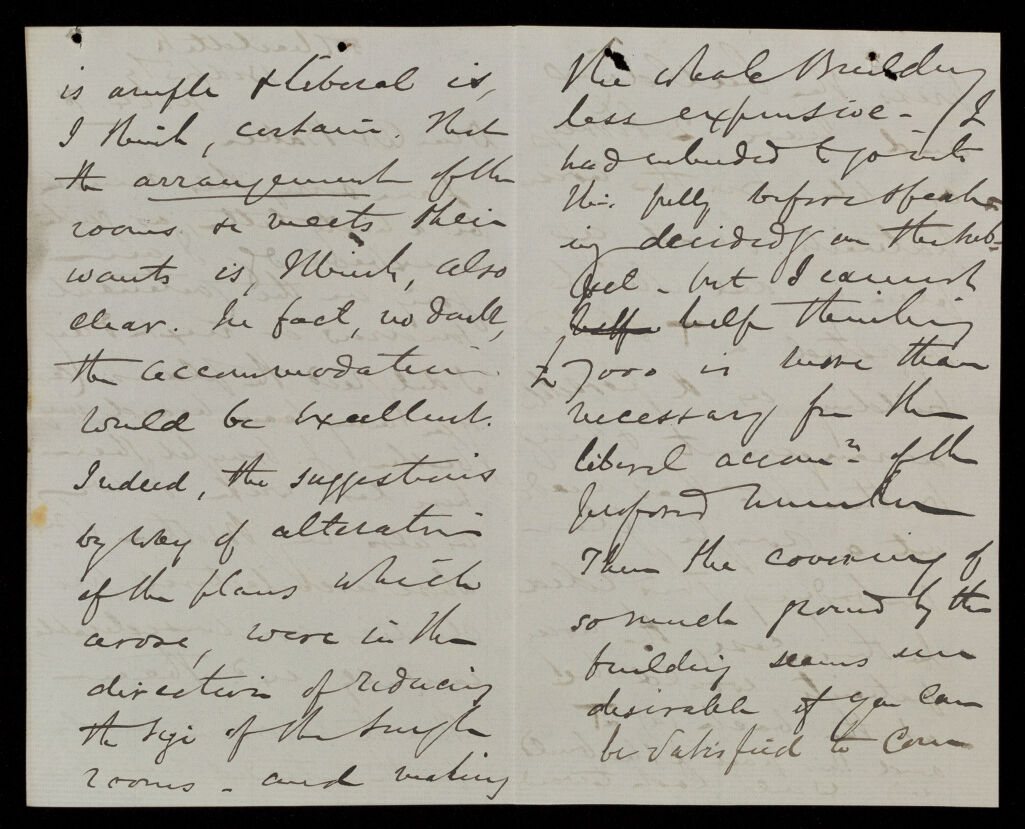 is ample & liberal is,
I think, certain. That
the arrangement of the
rooms &c meets their
wants is, I think, also
clear. In fact, no doubt,
the accommodation
would be excellent.
Indeed, the suggestions
by way of alteration
of the plans which
arose, were in the
direction of reducing
the size of the single
rooms - and making
the whole Building
less expensive - (I
had intended to go into
this fully before speak-
ing decidedly on the sub-
ject - but I cannot
help thinking
£7000 is more than
necessary for the
liberal accomn. of the
proposed number
Then the covering of
so much ground by the
building seems un
desirable if you can
be satisfied to con